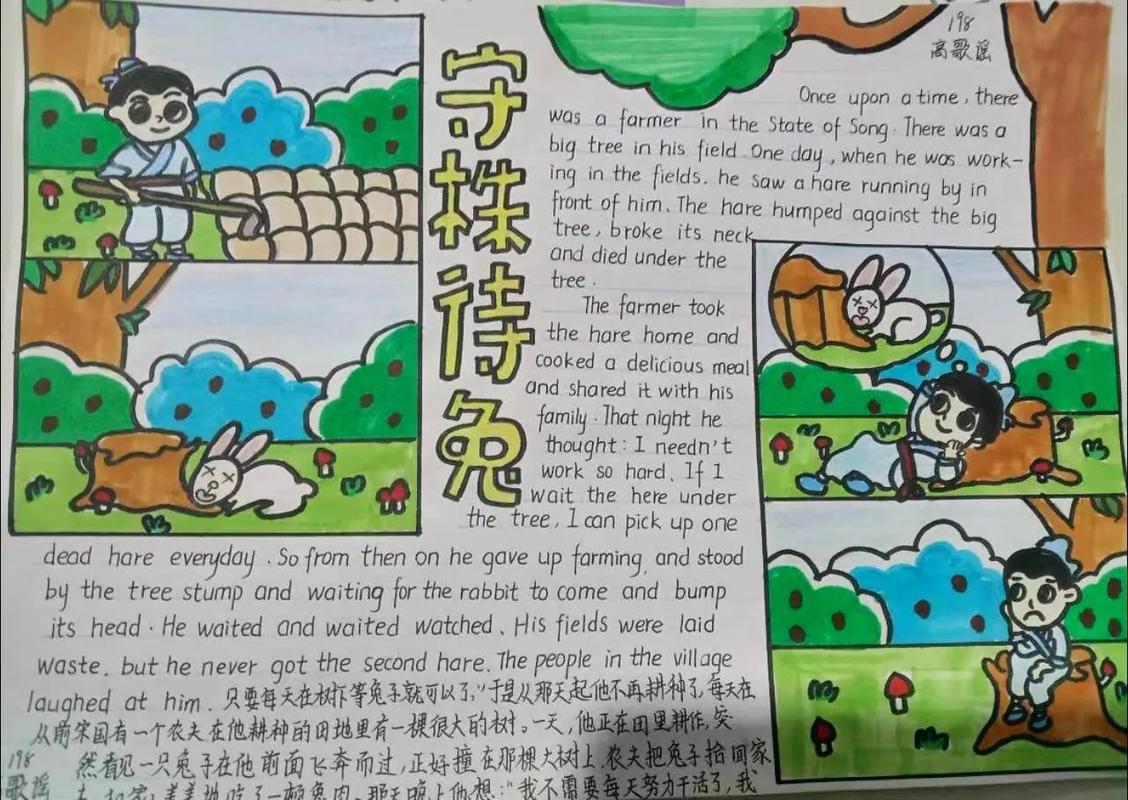 守株待兔
198
高歌谣
Once upon a time, there
was a farmer in the State of Song. There was a
big tree in his field. One day, when he was work-
ing in the fields. he saw a hare running by in
front of him. The hare humped against the big
tree, broke its neck
and died under the
tree.
The farmer took
the hare home and
cooked a delicious meal
and shared it with his
family. That night he
thought: I needn't
work so hard. If I
wait the here under
the tree, I can pick up one
dead hare everyday. So from then on he gave up farming, and stood
by the tree stump and waiting for the rabbit to come and bump
its head. He waited and waited watched. His fields were laid
waste. but he never got the second hare. The people in the village
laughed at him. 只要每天在树下等兔子就可以了."于是从那天起他不再耕种了,每天在
从前宋国有一个农夫在他耕种的田地里有一棵很大的树。一天,他正在田里耕作,突
198 然看见一只兔子在他前面飞奔而过,正好撞在那棵大树上.农夫把兔子拾回家
歌谣 美美地吃了一顿兔肉.那天晚上他想:"我不需要每天努力干活了,我